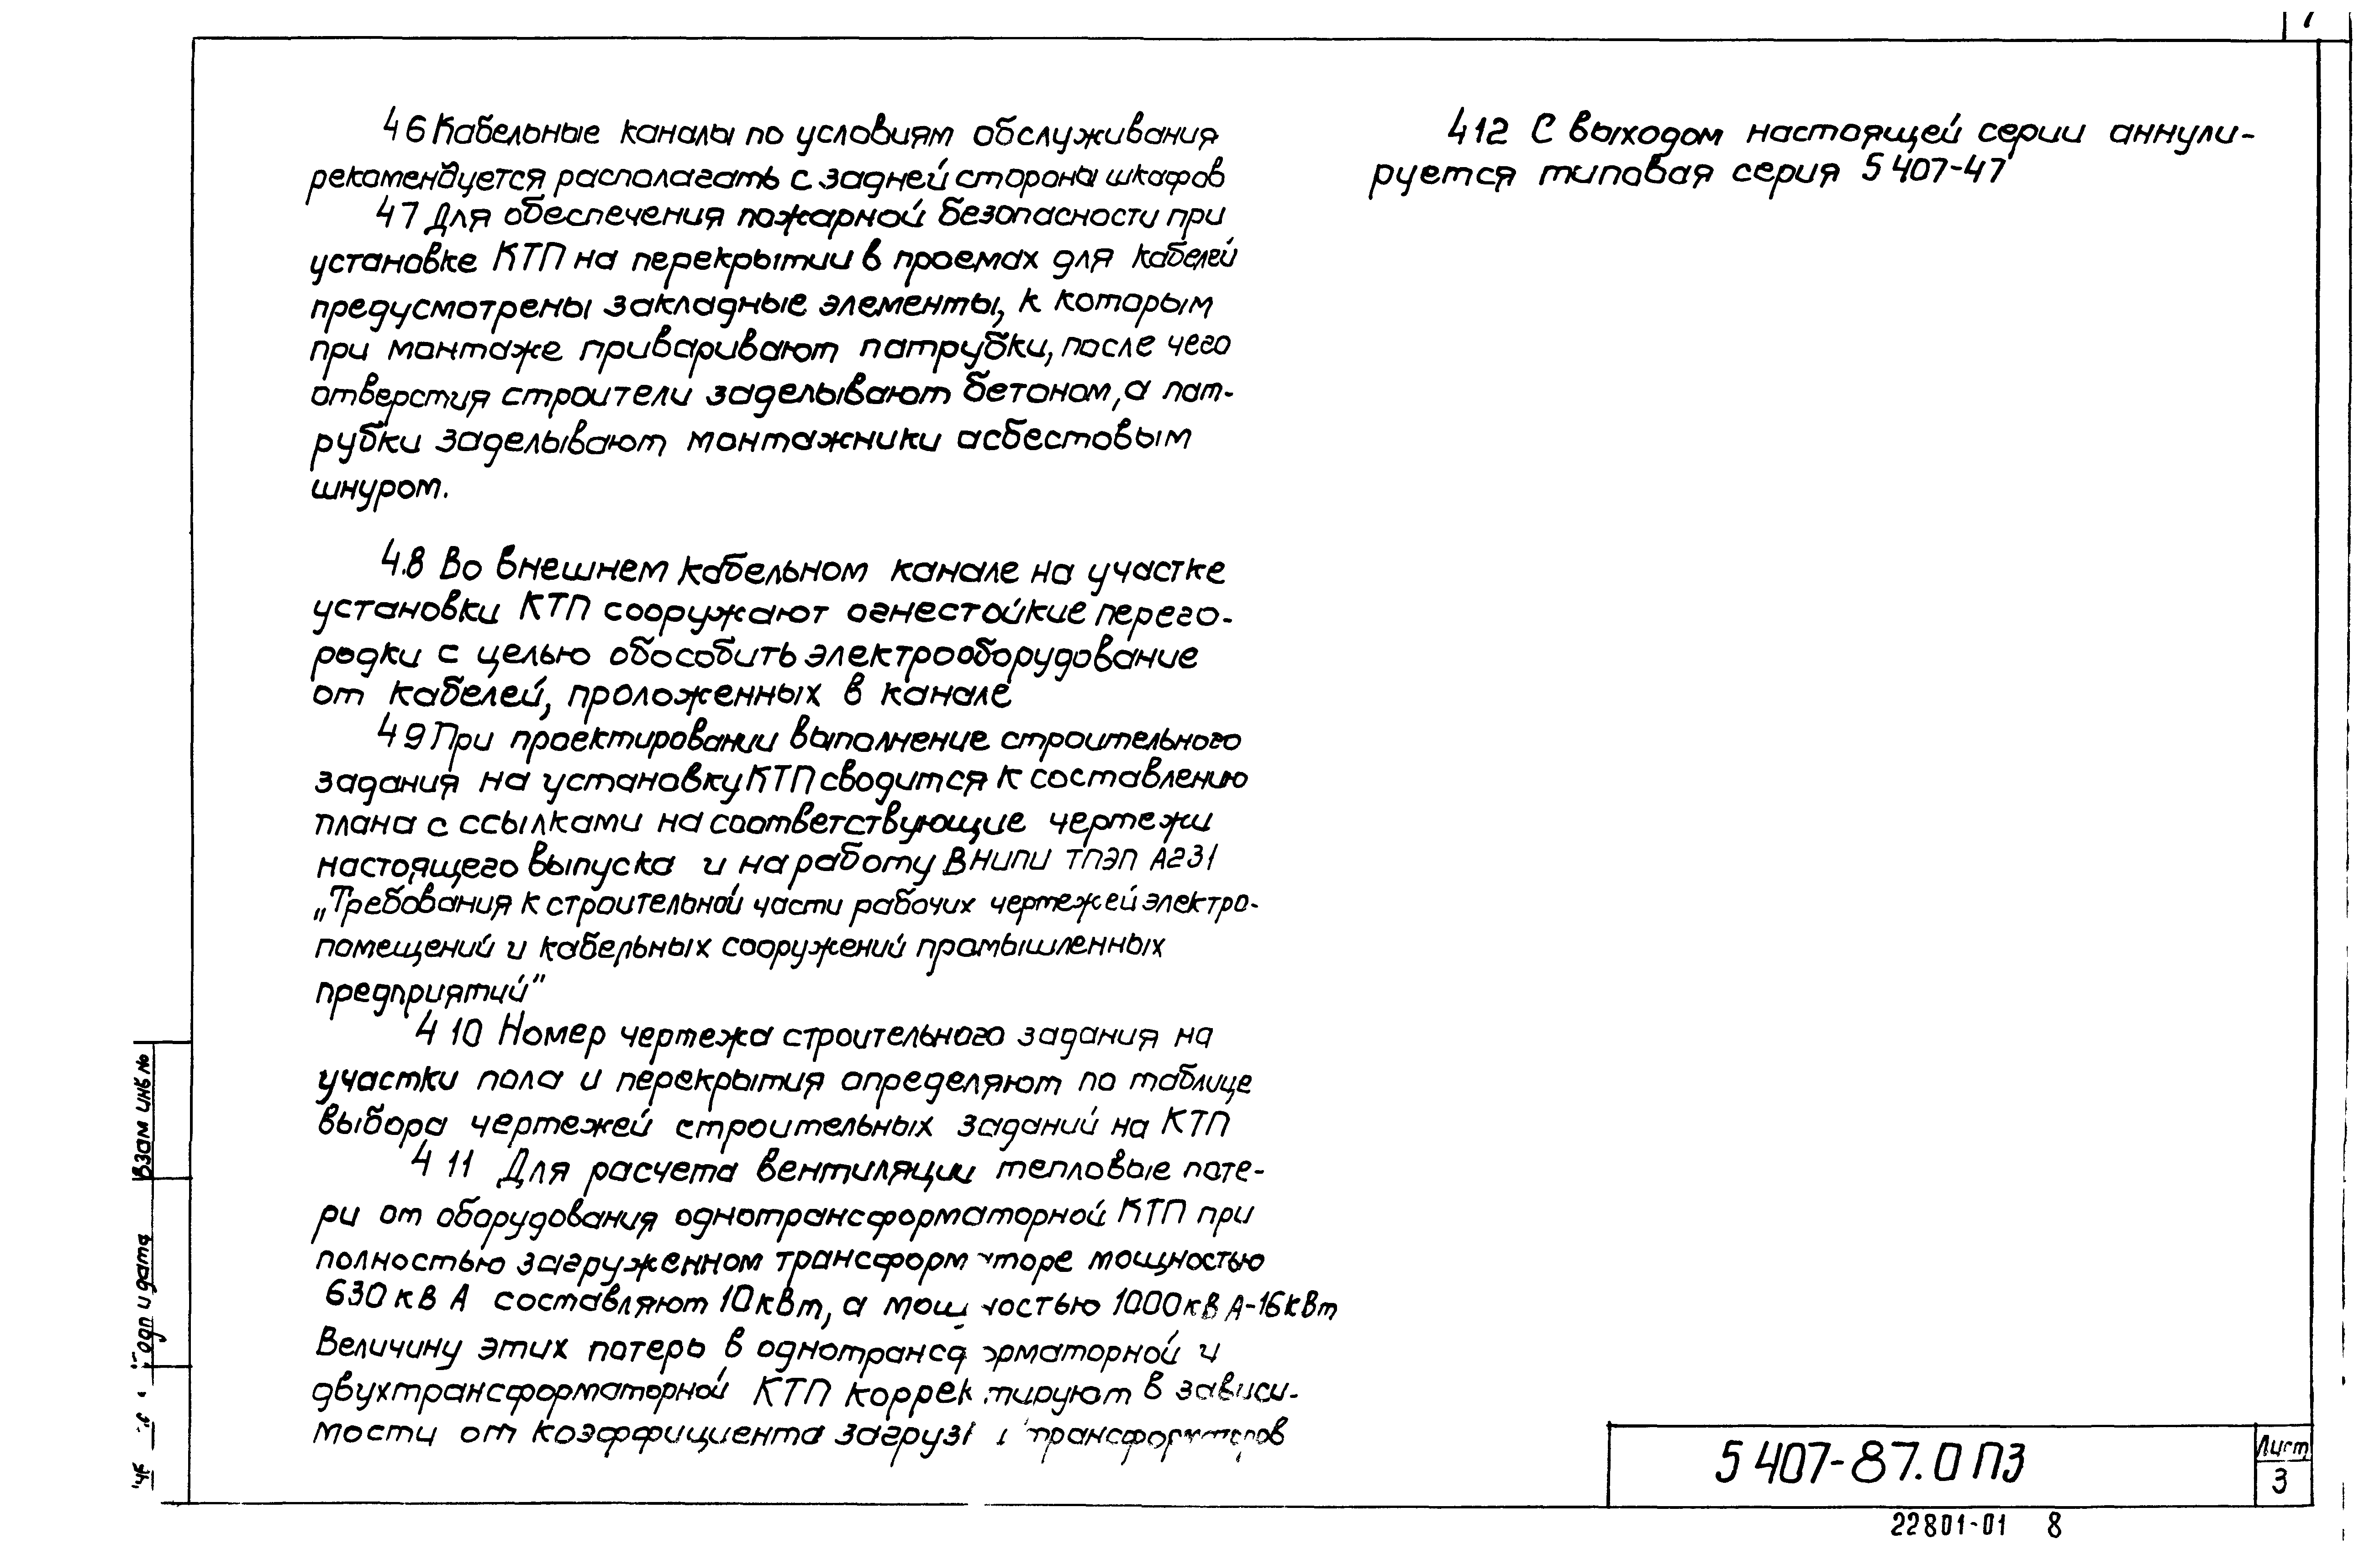 7
4 6 Кабельные каналы по условиям обслуживания
рекомендуется располагать с задней стороны шкафов
4 7 Для обеспечения пожарной безопасности при
установке КТП на перекрытии в проемах для кабелей
предусмотрены закладные элементы, к которым
при монтаже приваривают патрубки, после чего
отверстия строители заделывают бетоном, а пат-
рубки заделывают монтажники асбестовым
шнуром.
4.8 Во внешнем кабельном канале на участке
установки КТП сооружают огнестойкие перего-
родки с целью обособить электрооборудование
от кабелей, проложенных в канале
4 9 При проектировании выполнение строительного
задания на установку КТП сводится к составлению
плана с ссылками на соответствующие чертежи
настоящего выпуска и на работу ВНИПИ ТПЭП А231
„Требования к строительной части рабочих чертежей электро-
помещений и кабельных сооружений промышленных
предприятий"
4 10 Номер чертежа строительного задания на
участки пола и перекрытия определяют по таблице
выбора чертежей строительных заданий на КТП
4 11 Для расчета вентиляции тепловые поте-
ри от оборудования однотрансформаторной КТП при
полностью загруженном трансформаторе мощностью
630 кВ А составляют 10 кВт, а мощностью 1000 кВ А-16 кВт
Величину этих потерь в однотрансформаторной и
двухтрансформаторной КТП корректируют в зависи-
мости от коэффициента загрузки трансформаторов
4 12 С выходом настоящей серии аннули-
руется типовая серия 5 407-47
Взам инв №
одп и дата
5 407-87.0 ПЗ
Лист
3
22801-01 8